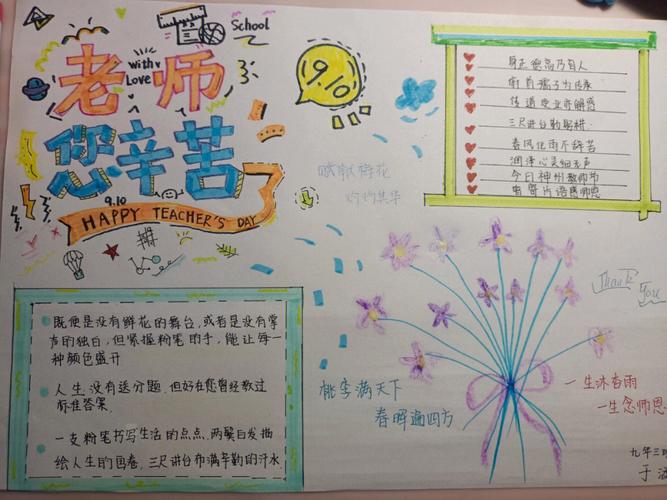 School
with
Love
老师
您辛苦了
9.10
9.10
HAPPY TEACHER'S DAY
身正德高乃育人
三尺讲台勤耕耘
春风化雨不辞苦
润泽心灵细无声
今日神州教师节
灼灼其华
既使是没有鲜花的舞台,或者是没有掌
声的独白,但紧握粉笔的手,能让每一
种颜色盛开
人生没有送分题,但好在您曾经教过
标准答案.
一支粉笔书写生活的点点,两鬓白发描
绘人生的画卷,三尺讲台布满辛勤的汗水
Thank
You
桃李满天下
春晖遍四方
一生沐春雨
一生念师恩
九年三
于